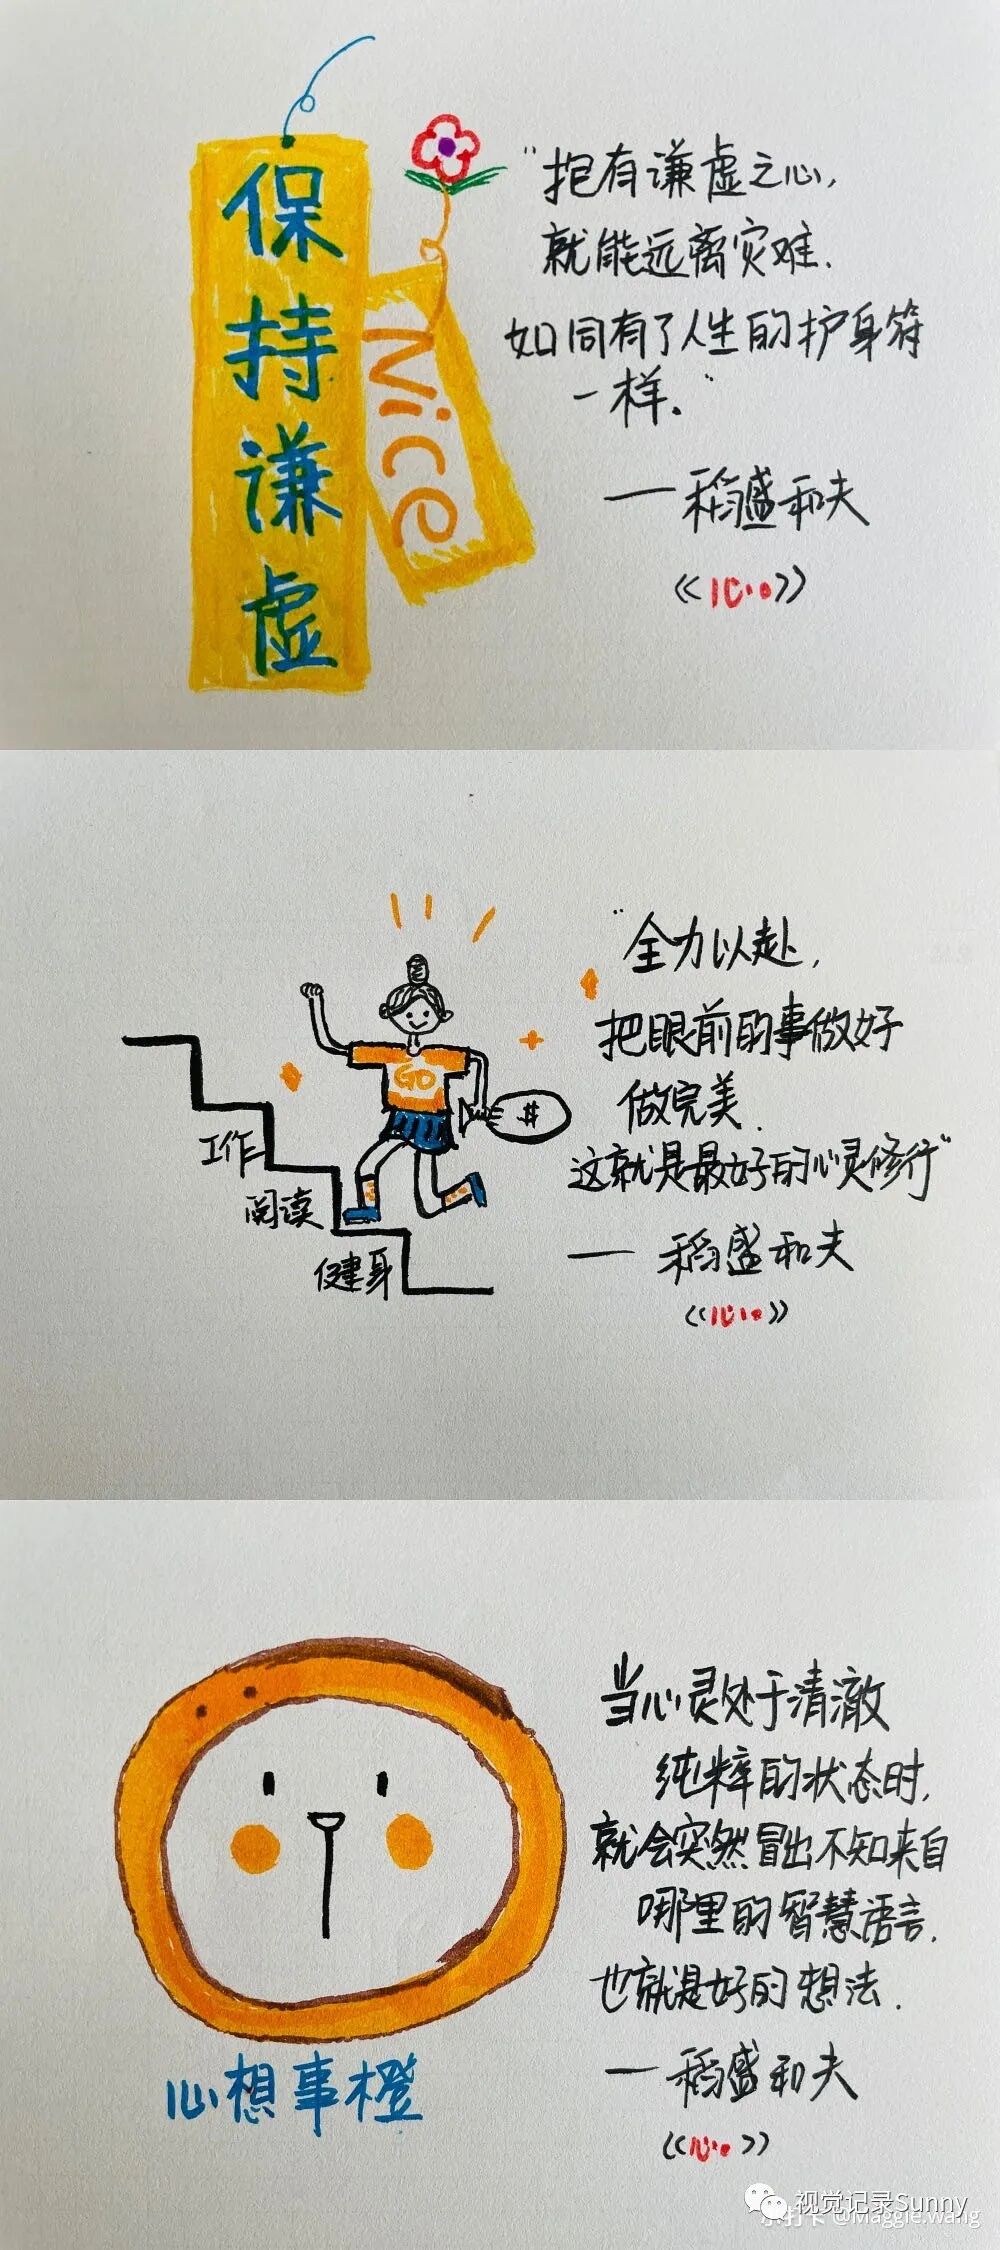 保持谦虚
Nice
"抱有谦虚之心,
就能远离灾难.
如同有了人生的护身符
一样."
——稻盛和夫
《心》
GO
$
工作
阅读
健身
"全力以赴,
把眼前的事做好
做完美.
这就是最好的心灵修行"
——稻盛和夫
《心》
当心灵处于清澈
纯粹的状态时,
就会突然冒出不知来自
哪里的智慧语言.
也就是好的想法.
——稻盛和夫
《心》
心想事橙
视觉记录Sunny
小打卡 @Maggie.wang